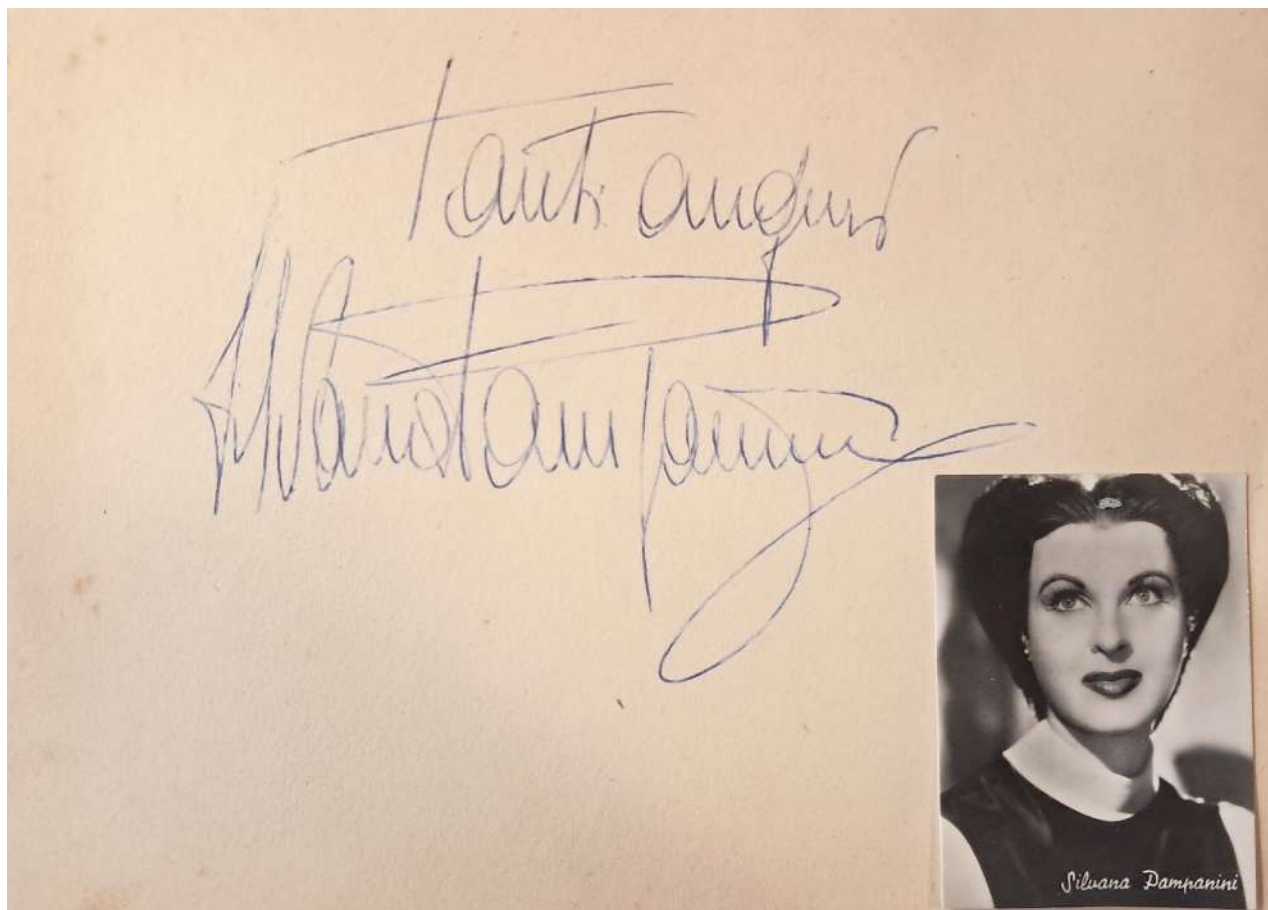 Tanti auguri
Silvana Pampanini
Silvana Pampanini